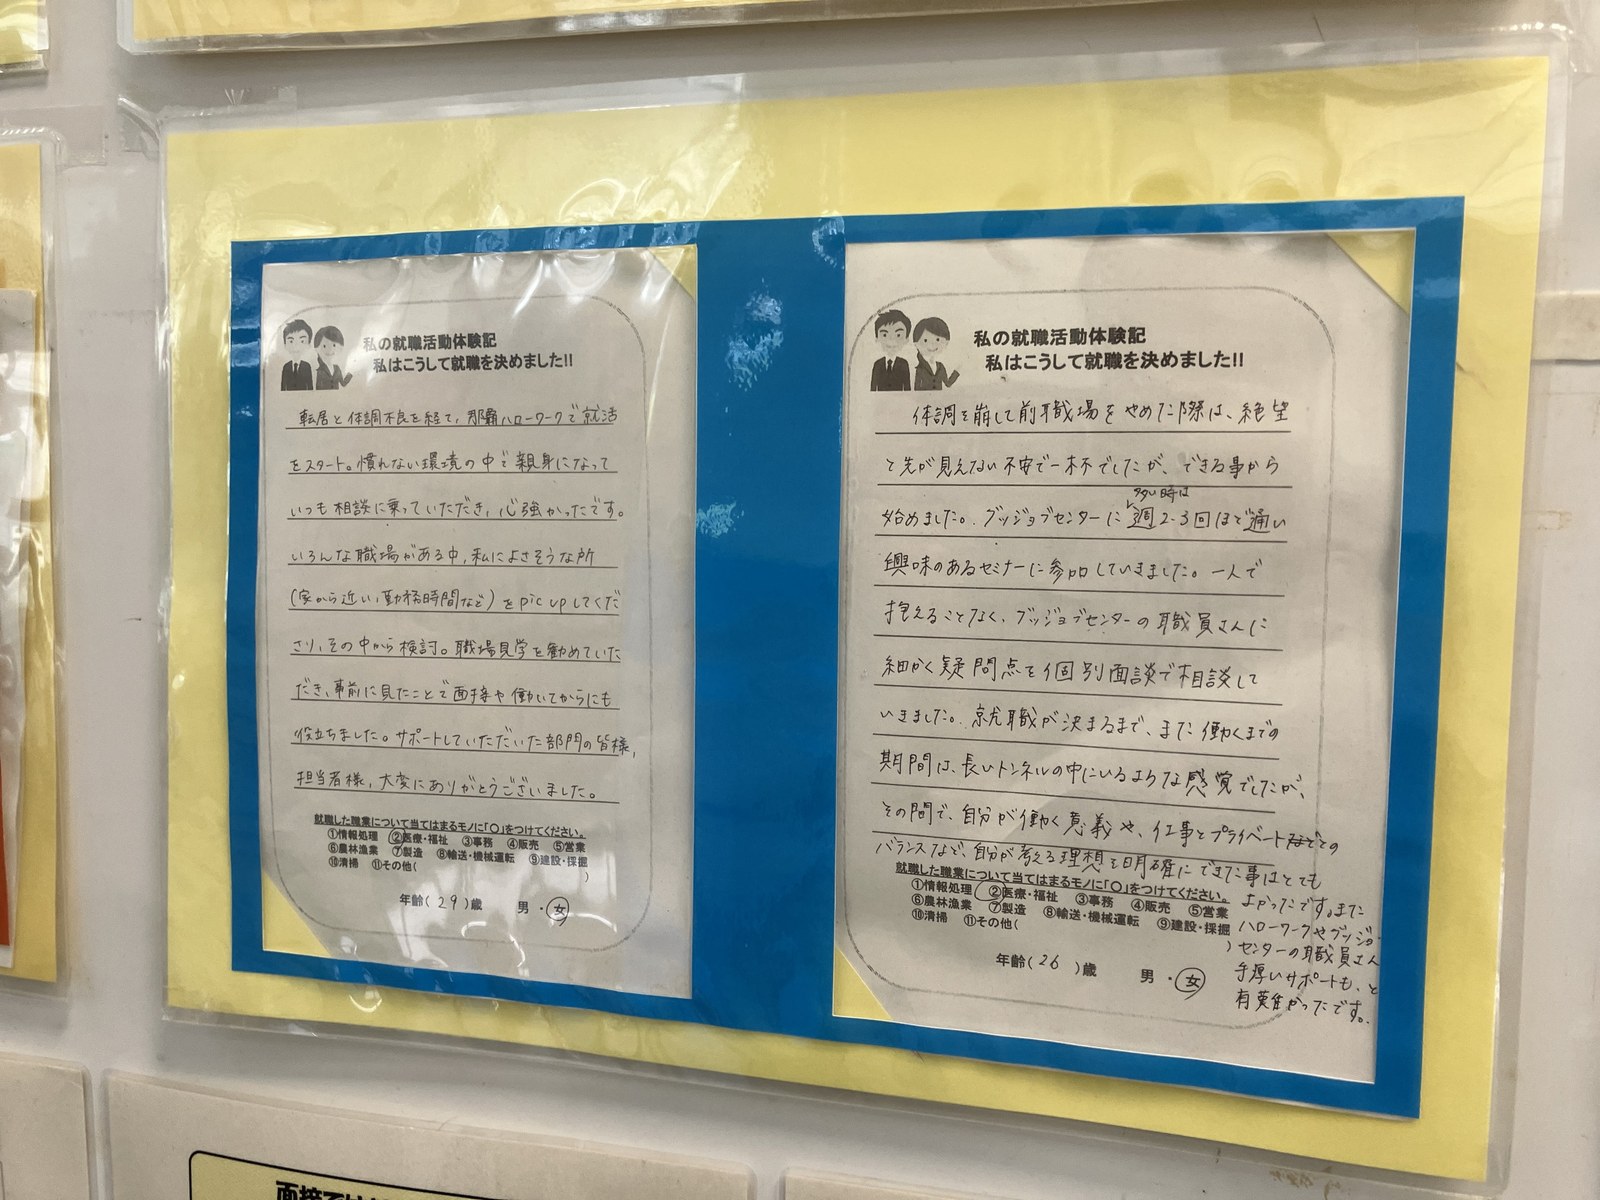 私の就職活動体験記
私はこうして就職を決めました!!
転居と体調不良を経て、那覇ハローワークで就活
をスタート。慣れない環境の中で親身になって
いつも相談に乗っていただき、心強かったです。
いろんな職場がある中、私によさそうな所
(家から近い、勤務時間など)をpic upしてくだ
さり、その中から検討。職場見学を勧めていた
だき、事前に見たことで面接や働いてからにも
役立ちました。サポートしていただいた部門の皆様、
担当者様、大変にありがとうございました。
就職した職業について当てはまるモノに「○」をつけてください。
①情報処理 ②医療・福祉 ③事務 ④販売 ⑤営業
⑥農林漁業 ⑦製造 ⑧輸送・機械運転 ⑨建設・採掘
⑩清掃 ⑪その他( )
年齢(29)歳 男・女
私の就職活動体験記
私はこうして就職を決めました!!
体調を崩して前職場をやめた際は、絶望
と先が見えない不安で一杯でしたが、できる事から
多い時は
始めました。グッジョブセンターに週2-3回ほど通い
興味のあるセミナーに参加していきました。一人で
抱えることなく、グッジョブセンターの職員さんに
細かく疑問点を個別面談で相談して
いきました。就職が決まるまで、また働くまでの
期間は、長いトンネルの中にいるような感覚でしたが、
その間で、自分が働く意義や、仕事とプライベートとの
バランスなど、自分が考える理想を明確にできた事はとても
よかったです。また
ハローワークやグッジョ
センターの職員さん
手厚いサポートも、と
有難かったです。
就職した職業について当てはまるモノに「○」をつけてください。
①情報処理 ②医療・福祉 ③事務 ④販売 ⑤営業
⑥農林漁業 ⑦製造 ⑧輸送・機械運転 ⑨建設・採掘
⑩清掃 ⑪その他( )
年齢(26)歳 男・女
面接では